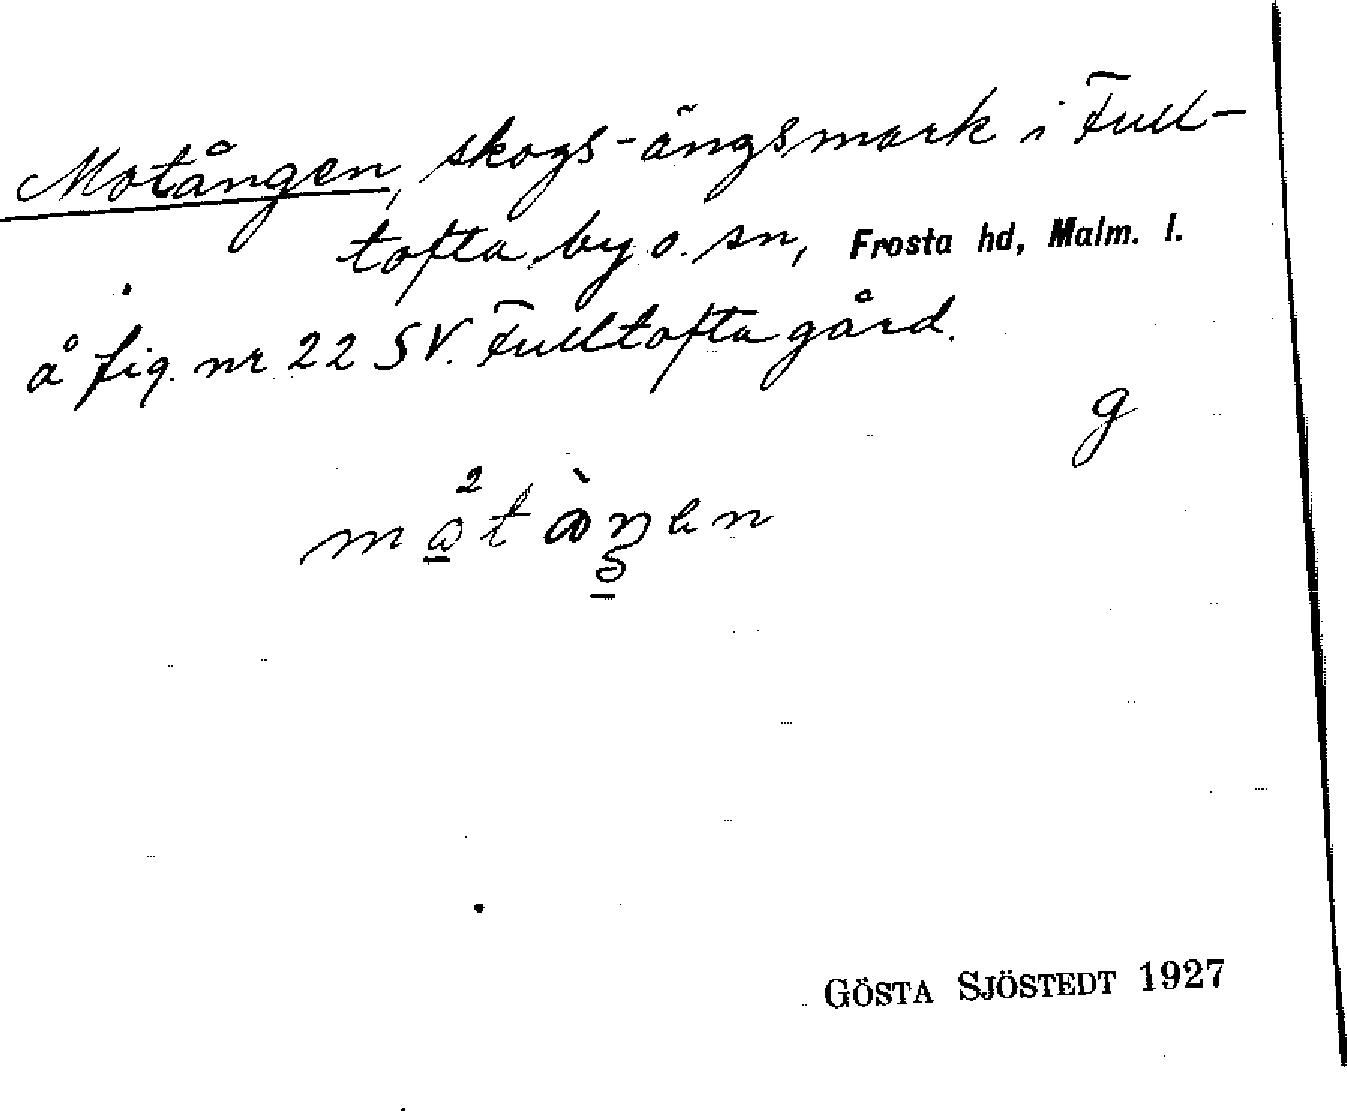 Motången, skogs-ängsmark i Full-
tofta by o. sn, Frosta hd, Malm. l.
å fig. nr 22 SV. Fulltofta gård.
g
GÖSTA SJÖSTEDT 1927